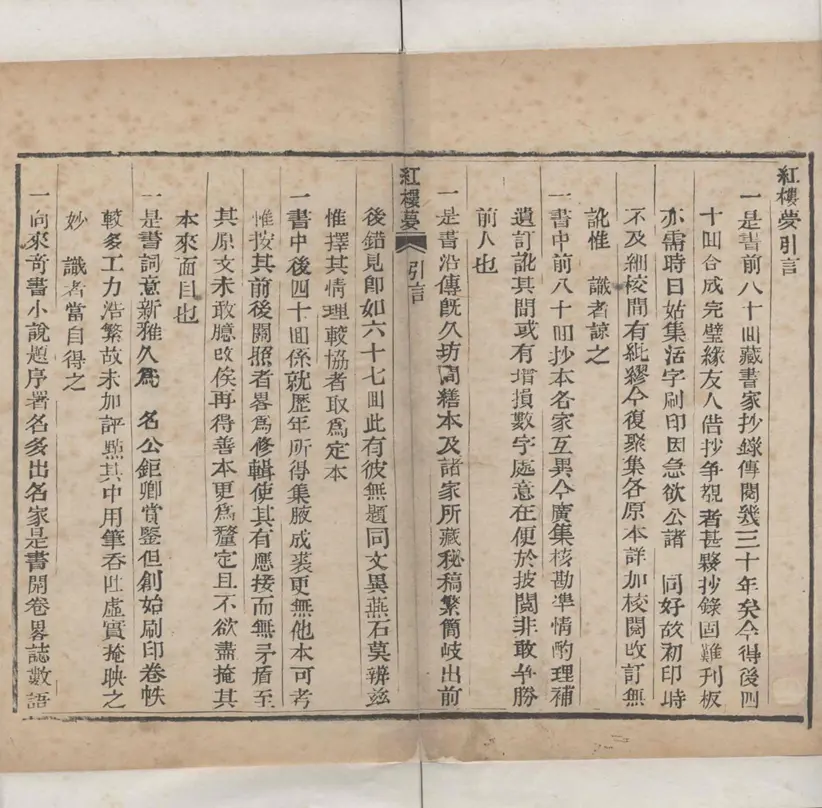 紅樓夢引言
一是書前八十囬藏書家抄錄傳閱幾三十年矣今得後四
十囬合成完璧緣友人借抄爭覩者甚夥抄錄固難刋板
亦需時日姑集活字刷印因急欲公諸 同好故初印時
不及細校間有紕繆今復聚集各原本詳加校閱改訂無
訛惟 識者諒之
一書中前八十囬抄本各家互異今廣集核勘準情酌理補
遺訂訛其間或有增損數字處意在便於披閱非敢爭勝
前人也
一是書沿傳旣久坊間繕本及諸家所藏秘稿繁簡歧出前
紅樓夢 引言
後錯見卽如六十七囬此有彼無題同文異燕石莫辨兹
惟擇其情理較協者取爲定本
一書中後四十囬係就歷年所得集腋成裘更無他本可考
惟按其前後關照者畧爲修輯使其有應接而無矛盾至
其原文未敢臆改俟再得善本更爲釐定且不欲盡掩其
本來面目也
一是書詞意新雅久爲 名公鉅卿賞鑒但創始刷印卷帙
較多工力浩繁故未加評㸃其中用筆吞吐虛實掩映之
妙 識者當自得之
一向來奇書小說題序署名多出名家是書開卷畧誌數語